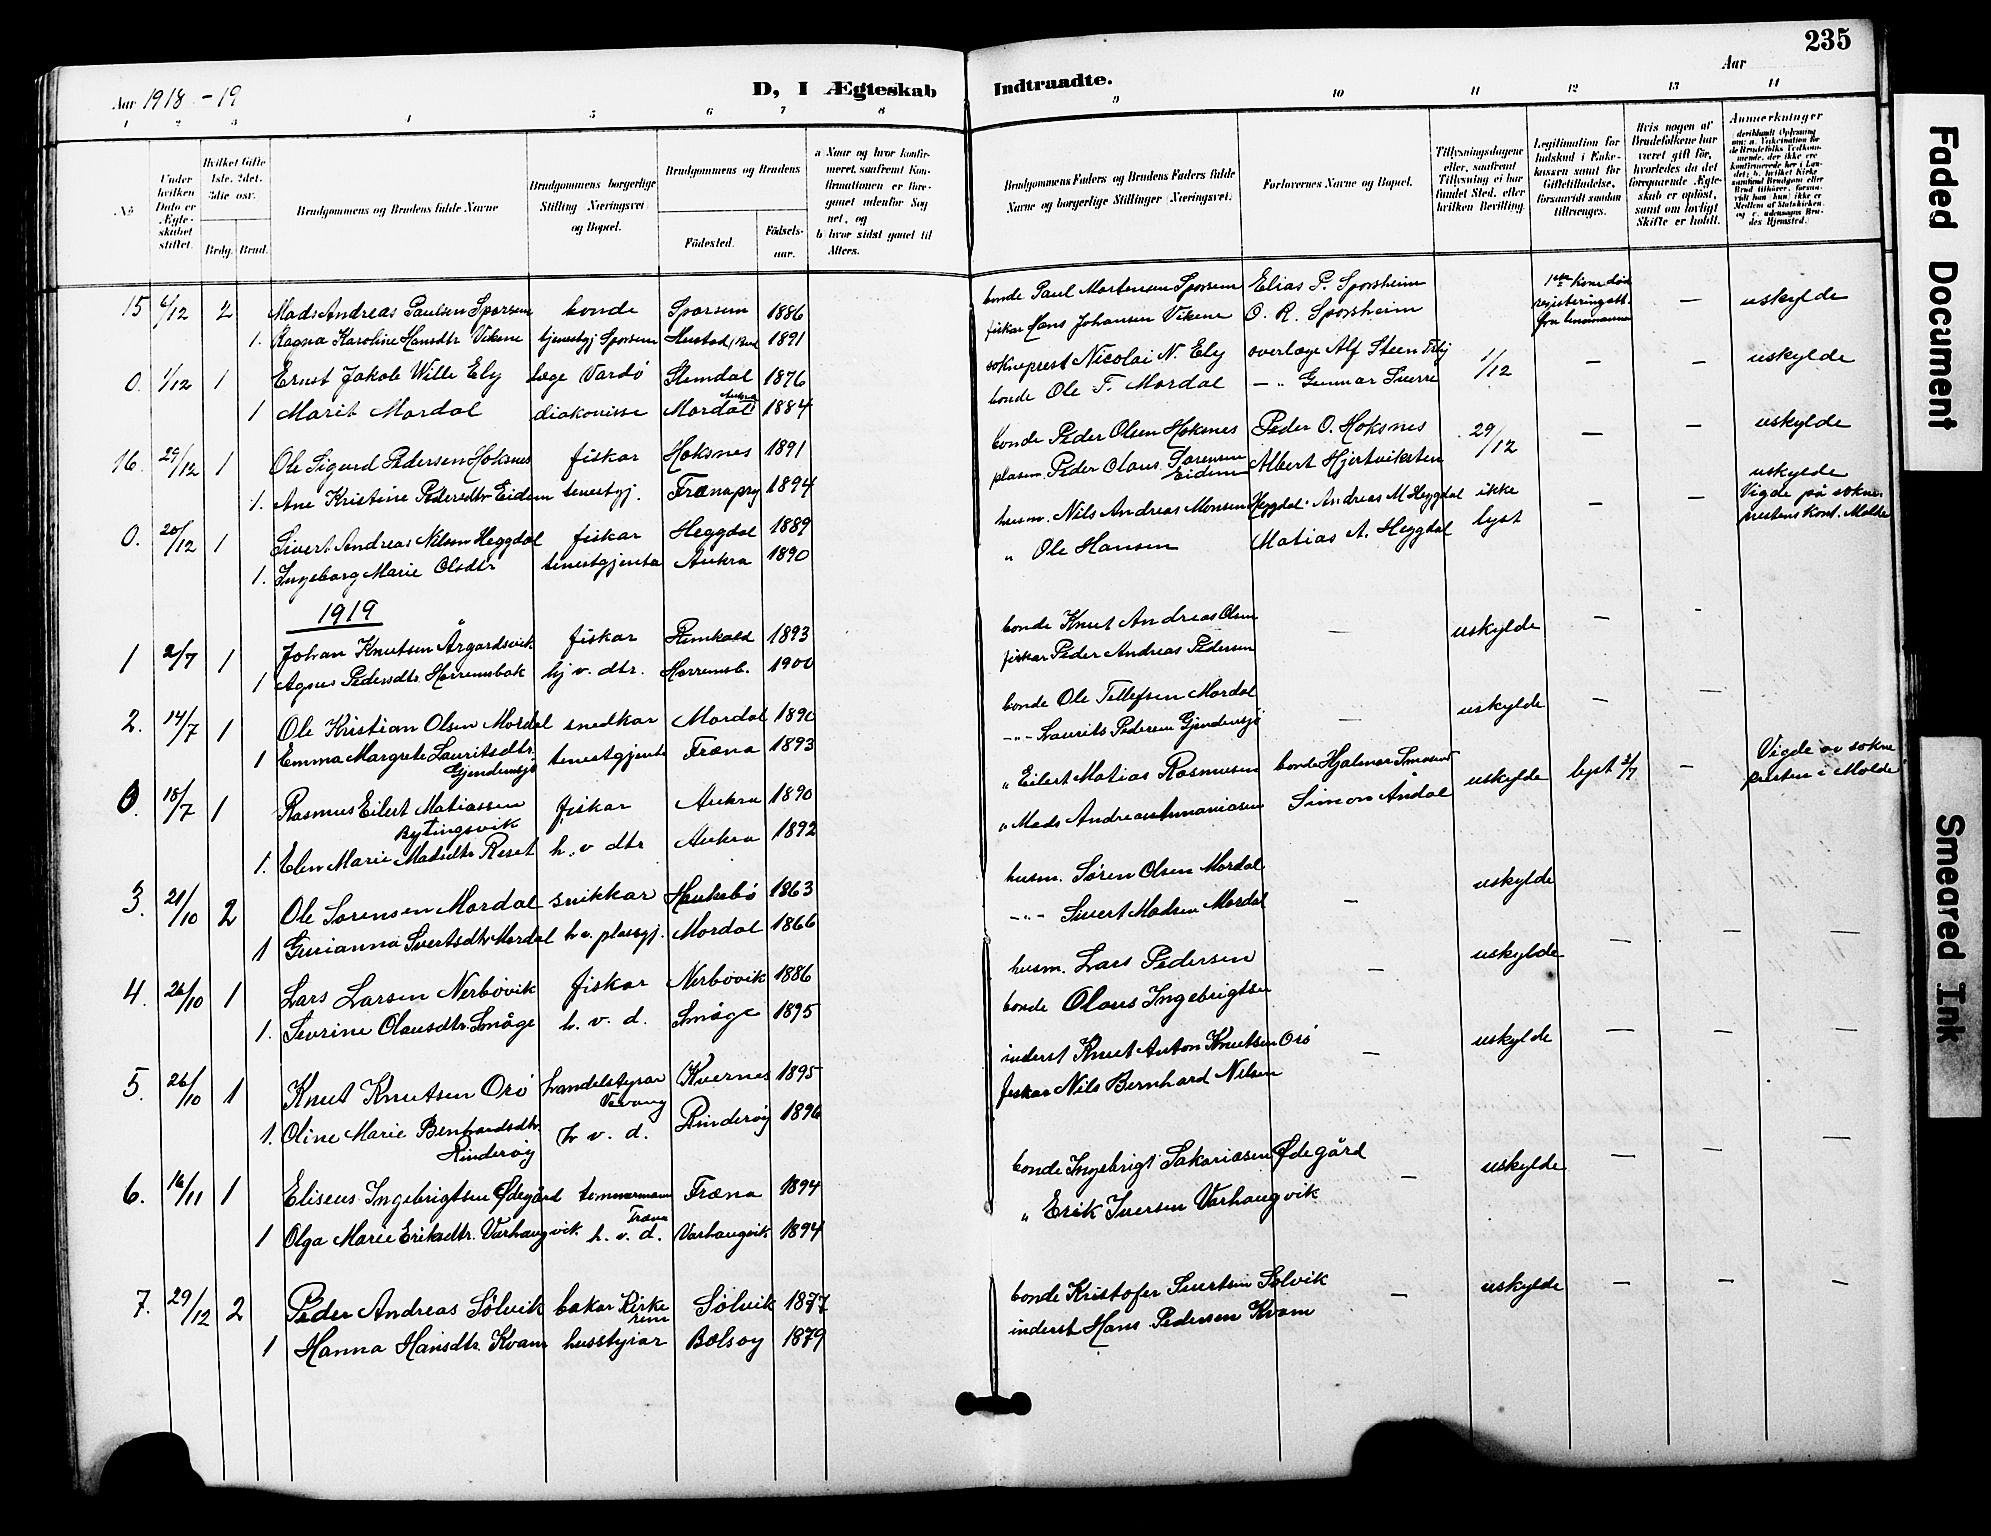 235
Aar 1918 - 19
D, I Ægteskab Indtraadte.
Aar
1 2 3 4 5 6 7 8 9 10 11 12 13 14
No
Under hvilken Dato er Ægteskabet stiftet.
Hvilket Gifte 1ste, 2det, 3die osv.
Brdg. Brud.
Brudgommens og Brudens fulde Navne
Brudgommens borgerlige Stilling (Næringsvei) og Bopæl.
Brudgommens og Brudens
Födested.
Födsels-aar.
a. Naar og hvor konfirmeret, saafremt Konfirmationen er foregaaet udenfor Sognet, og
b. hvor sidst gaaet til Alters.
Brudgommens Faders og Brudens Faders fulde Navne og borgerlige Stillinger (Næringsvei).
Forlovernes Navne og Bopæl.
Tillysningsdagene eller, saafremt Tillysning ei har fundet Sted, efter hvilken Bevilling.
Legitimation for Indskud i Enkekassen samt for Giftetilladelse, forsaavidt saadan tiltrænges.
Hvis nogen af Brudefolkene har været gift för, hvorledes da det foregaaende Ægteskab er oplöst, samt om lovligt Skifte er holdt.
Anmærkninger
15 6/12 2 Mads Andreas Paulsen Sporsem bonde Sporsem 1886 bonde Paul Mortensen Sporsem Elias P. Sporsheim 1ste kone död — uskylde
1. Ragna Karoline Hansdtr Vikene tjenestgj Sporsem Hustad, Bud 1891 fiskar Hans Johansen Vikene O. R. Sporsheim
0. 1/12 1 Ernst Jakob Wille Ely læge Vardö Stemdal 1876 sokneprest Nicolai N. Ely overlæge Alf Steen 1/12 — — uskylde
1 Marit Mordal diakonisse Mordal Aukra 1884 bonde Ole T. Mordal —"— Gunnar Sverre
16. 29/12 1 Ole Sigurd Pedersen Hoksnes fiskar Hoksnes 1891 bonde Peder Olsen Hoksnes Peder O. Hoksnes 29/12 — — uskylde
1. Ane Kristine Pedersdtr Eidem tenestgj. Fræna 1894 plassm. Peder Olaus Sörensen Eidem Albert Hjertviksten
0. 20/12 1 Sivert Andreas Nilsen Heggdal fiskar Heggdal 1889 husm. Nils Andreas Monsen Heggdal Andreas M Heggdal ikke lyst — — uskylde Vigde på sokneprestens kont. Molde
1. Ingeborg Marie Olsdtr tenestgjenta Aukra 1890 " Ole Hansen Matias A. Heggdal
1919
1 2/7 1 Johan Knutsen Årgardsvik fiskar 1893 bonde Knut Andreas Olsen — uskylde — -
1 Agnes Pedersdtr. Harremsbak hj v. dtr. Harremsb. 1900 fiskar Peder Andreas Pedersen
2. 14/7 1 Ole Kristian Olsen Mordal snedkar Mordal 1890 bonde Ole Tellefsen Mordal — uskylde — —
1 Emma Margrete Lauritsdtr. Gjendemsjö tenestgjente Fræna 1893 —"— Laurits Pedersen Gjendemsjö
0. 18/7 1 Rasmus Eilert Matiassen Rytingsvik fiskar Aukra 1890 " Eilert Matias Rasmusen bonde Hjalmar uskylde lyst 2/7 — Vigde av sokneprsten i Molde
1. Elen Marie Madsdtr Reset h. v dtr Aukra 1892 " Mads Andreas Ananiasen Simon Åndal
3. 21/10 2 Ole Sörensen Mordal snikkar Haukebö 1863 husm. Sören Olsen Mordal — uskylde
1 Gurianna Sivertsdtr Mordal h. v. plassgj. Mordal 1866 —"— Sivert Madsen Mordal
4. 26/10 1 Lars Larsen Nerbövik fiskar Nerbövik 1886 husm. Lars Pedersen — uskylde — — —
1. Sevrine Olausdtr. Småge h. v. d. Småge 1895 bonde Olaus Ingebrigtsen
5. 26/10 1 Knut Knutsen Orö handelstyrar Vevang Kvernes 1895 inderst Knut Anton Knutsen Orö — uskylde — — —
1. Oline Marie Bernhardsdtr. Rinderöy h v. d. Rinderöy 1896 fiskar Nils Bernhard Nilsen
6. 16/11 1 Eliseus Ingebrigtsen Ødegård tømmermann Fræna Fræna 1894 bonde Ingebrigt Sakariasen Ødegård — uskylde — — —
1 Olga Marie Eriksdtr. Varhaugvik h. v. d. Varhaugvik 1894 " Erik Iversen Varhaugvik
7. 29/12 2 Peder Andreas Sölvik bakar Kirkerem Sölvik 1877 bonde Kristofer Sivertsen Sölvik — uskylde — — —
1 Hanna Hansdtr. Kvam husstyrar Bolsöy 1879 inderst Hans Pedersen Kvam
Faded Document
Smeared Ink